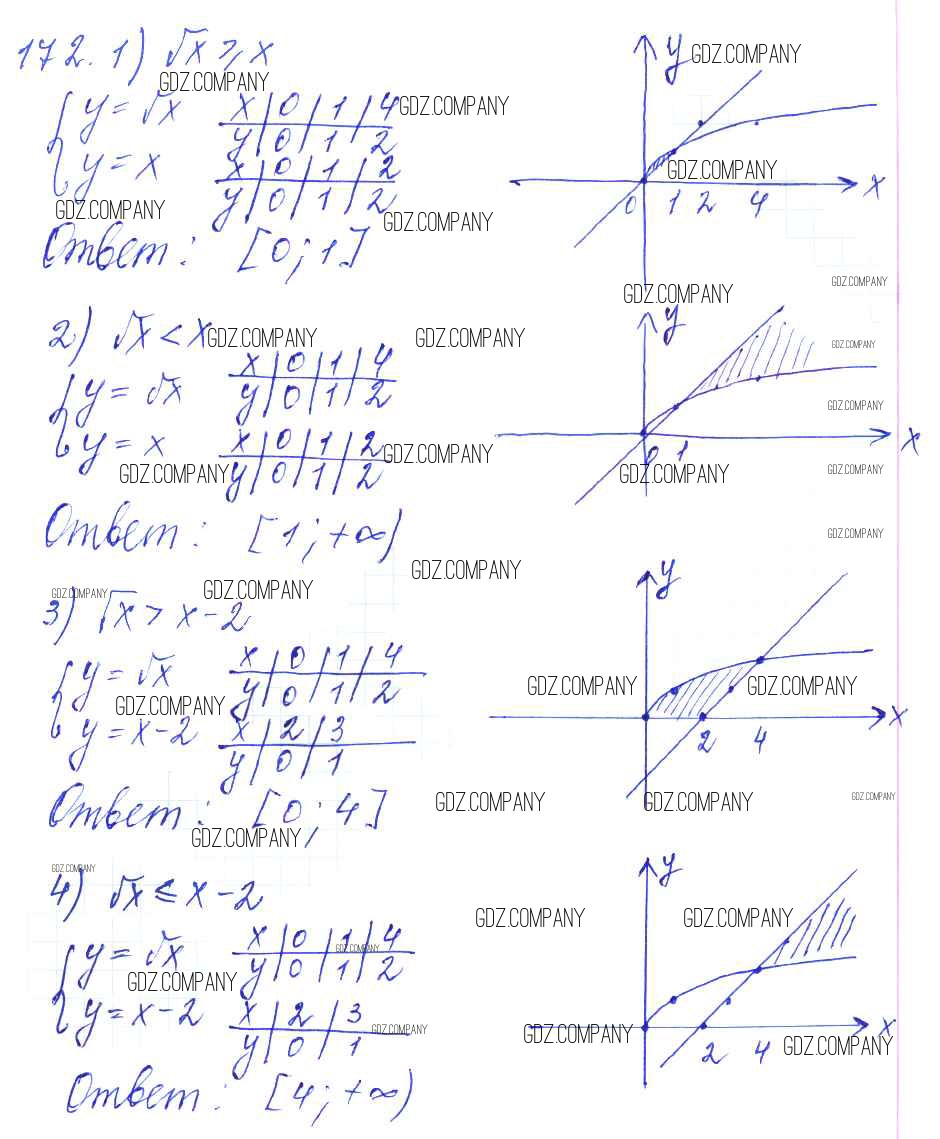 172. 1) √x ⩾ x
GDZ.COMPANY
y = √x x | 0 | 1 | 4
y | 0 | 1 | 2
GDZ.COMPANY
y = x x | 0 | 1 | 2
y | 0 | 1 | 2
GDZ.COMPANY
GDZ.COMPANY
Ответ: [0; 1]
y GDZ.COMPANY
GDZ.COMPANY
x
0 1 2 4
GDZ.COMPANY
GDZ.COMPANY
2) √x < x
GDZ.COMPANY
GDZ.COMPANY
y = √x x | 0 | 1 | 4
y | 0 | 1 | 2
y = x x | 0 | 1 | 2
y | 0 | 1 | 2
GDZ.COMPANY
GDZ.COMPANY
Ответ: [1; +∞)
y
GDZ.COMPANY
GDZ.COMPANY
x
0 1
GDZ.COMPANY
GDZ.COMPANY
GDZ.COMPANY
GDZ.COMPANY
GDZ.COMPANY
GDZ.COMPANY
3) √x > x - 2
y = √x x | 0 | 1 | 4
y | 0 | 1 | 2
GDZ.COMPANY
y = x - 2 x | 2 | 3
y | 0 | 1
Ответ: [0; 4]
GDZ.COMPANY
y
GDZ.COMPANY
GDZ.COMPANY
x
2 4
GDZ.COMPANY
GDZ.COMPANY
GDZ.COMPANY
GDZ.COMPANY
4) √x ⩽ x - 2
y = √x x | 0 | 1 | 4
GDZ.COMPANY
y | 0 | 1 | 2
GDZ.COMPANY
y = x - 2 x | 2 | 3
y | 0 | 1
GDZ.COMPANY
Ответ: [4; +∞)
y
GDZ.COMPANY
GDZ.COMPANY
GDZ.COMPANY
x
2 4
GDZ.COMPANY